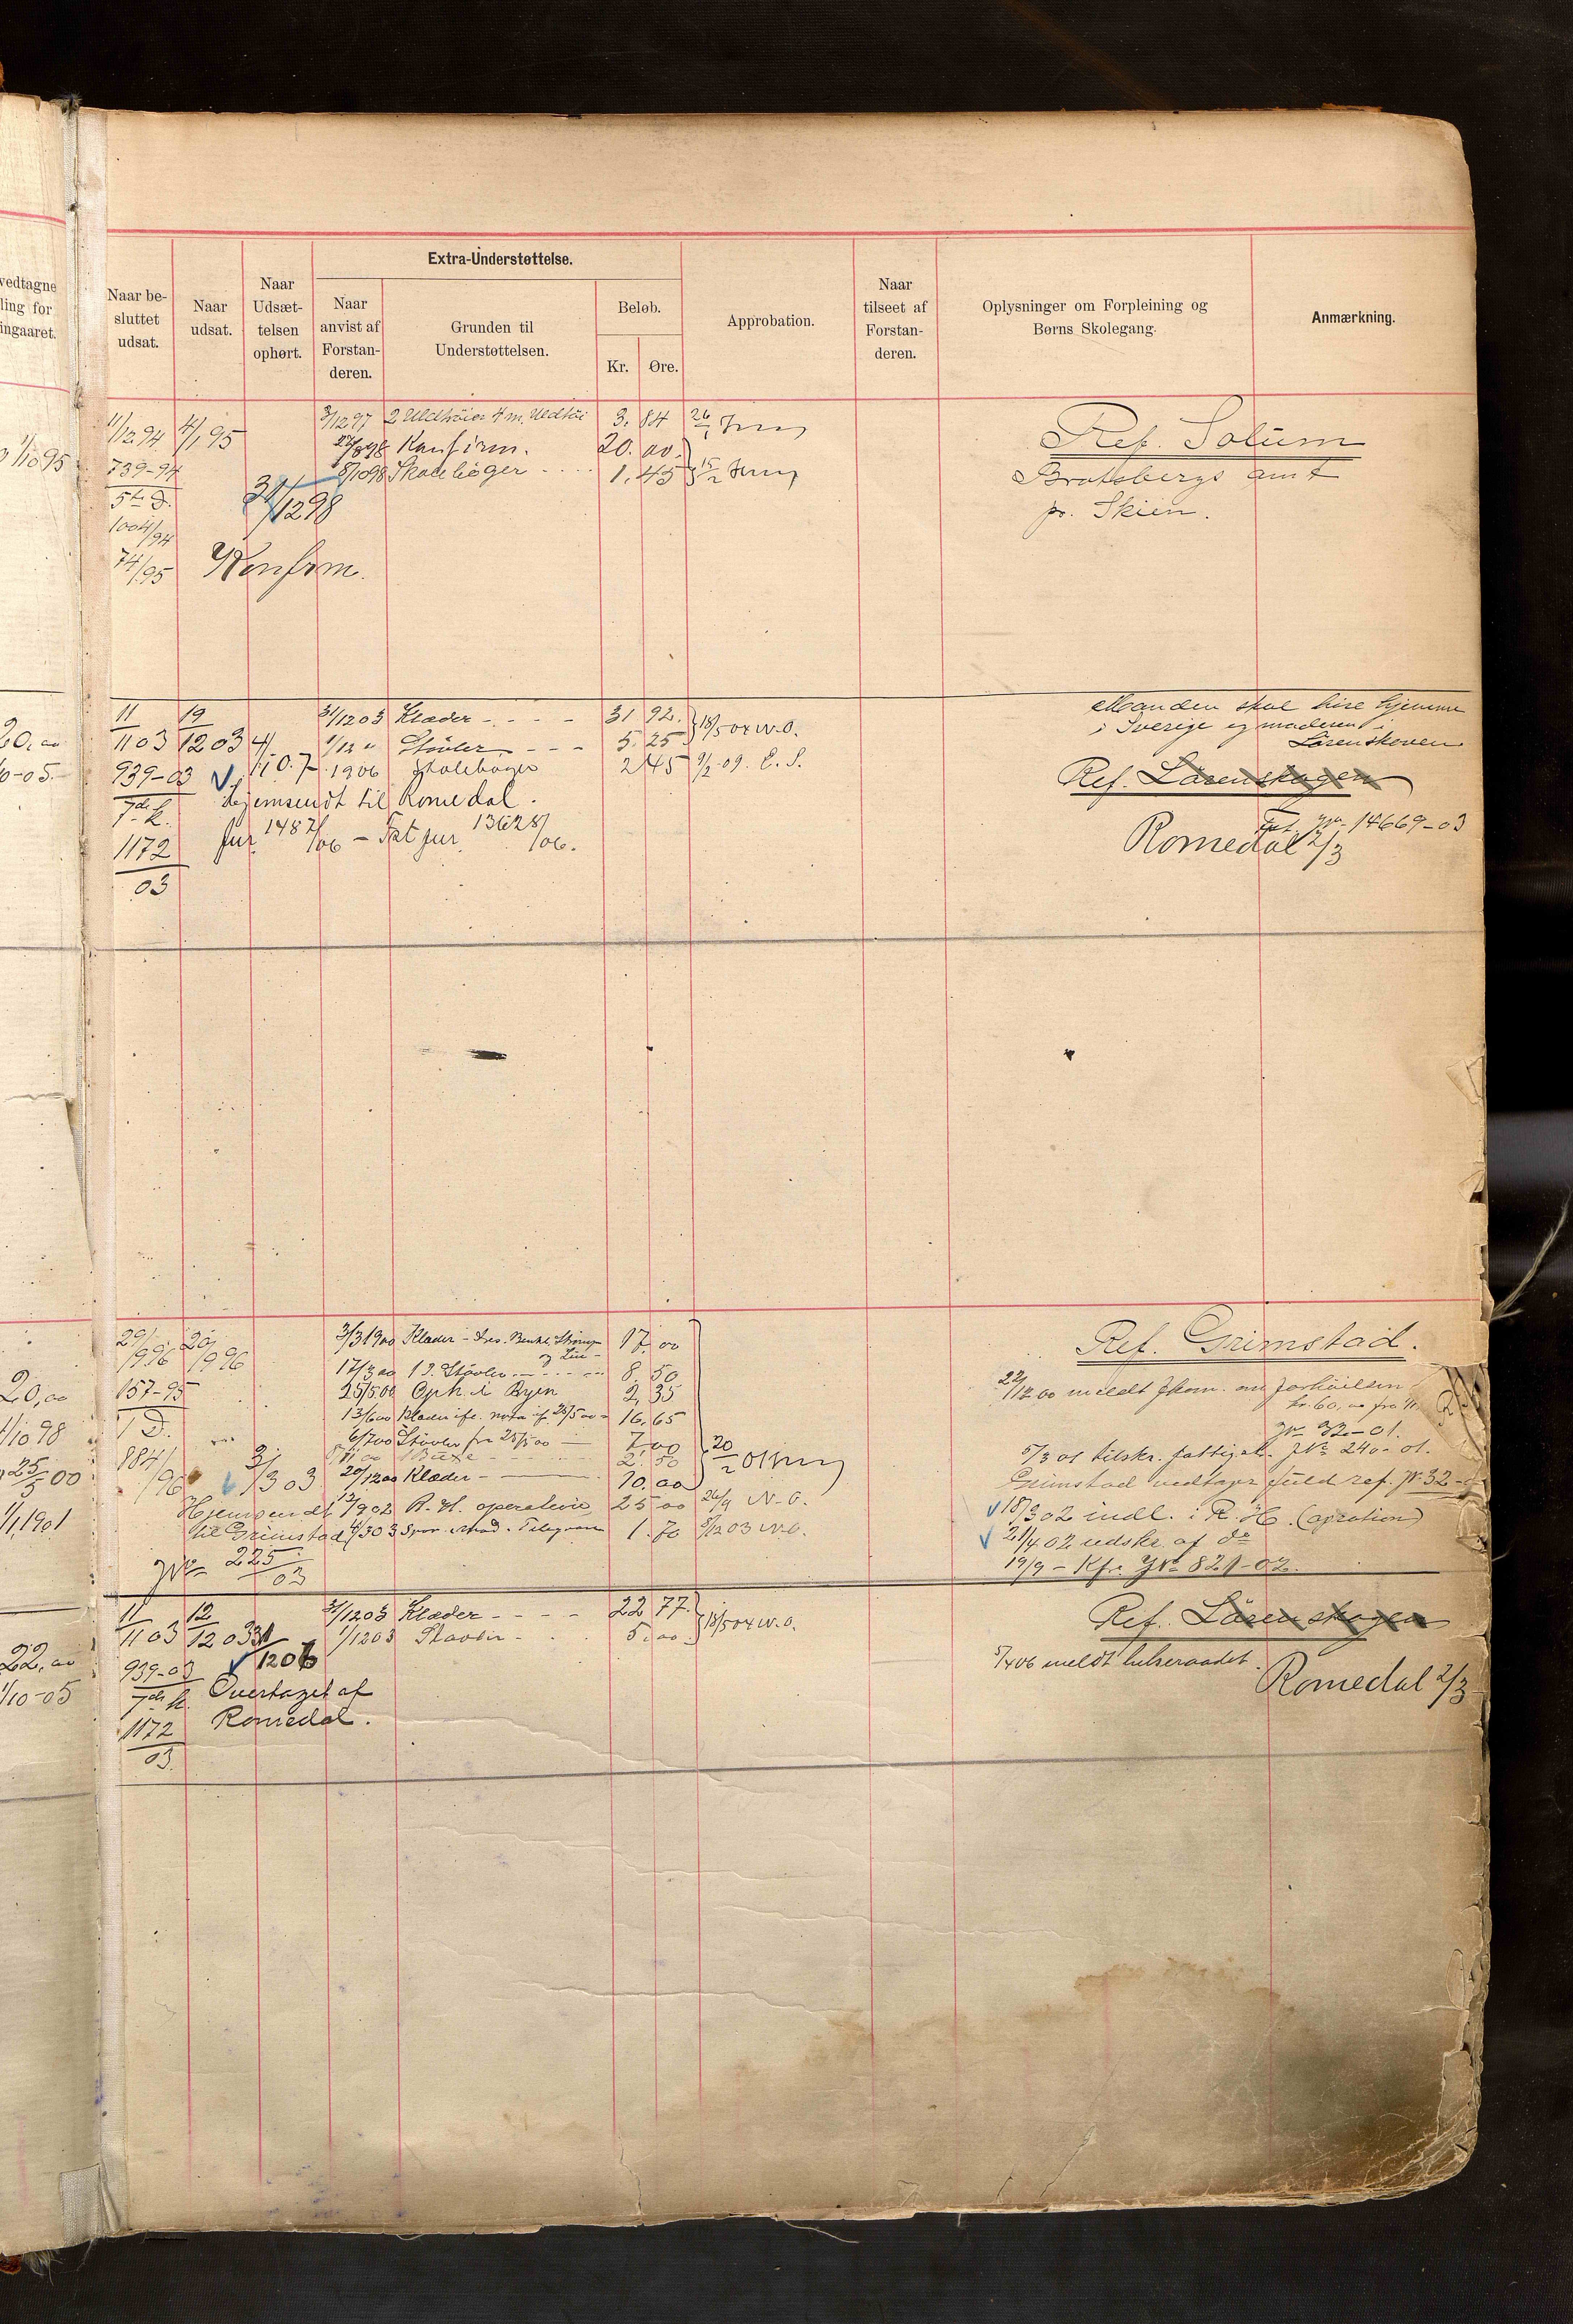 vedtagne
ling for
ingaaret.
Naar be-
sluttet
udsat.
Naar
udsat.
Naar
Udsæt-
telsen
ophørt.
Extra-Understøttelse.
Naar
anvist af
Forstan-
deren.
Grunden til
Understøttelsen.
Beløb.
Kr.
Øre.
Approbation.
Naar
tilseet af
Forstan-
deren.
Oplysninger om Forpleining og
Børns Skolegang.
Anmærkning.
1/10 95
11/12 94 4/1 95
739-94
5te D.
1004/94
74/95
31/12 98
Konfirm.
3/12 97 2 Uldtrøier 4 m. Uldtøi 3. 84 26/1
22/8 98 Konfirm. 20. 00
8/10 98 Skolebøger 1. 45 15/2
Ref. Solum
Bratsbergs amt
pr. Skien.
20,00
10-05.
11/11 03 19/12 03
939-03
7de k.
1172/03
31/12 03 Klæder - - - - 31 92. 18/5 04 N.O.
1/12 " Støvler - - - 5. 25
1906 Skolebøger 2 45 9/2-09. E. S.
Hjemsendt til Romedal.
Jur 1487/06 - Fat jur 13628/06.
Manden skal bire hjemme
i Sverige og moderen i
Lørenskoven
Ref. Lørenskogen
Fat. Jr. 14669-03
Romedal 2/3
20,00
1/10 98
25/5 00
1/1 1901
29/1 96 20/1 96
157-95
1 D.
884/96
3/3 03
Hjemsendt
til Grimstad
Jr 225/03
3/3 1900 Klæder - 17. 00
og Liv -
17/3 00 1 P. Støvler 8. 50
25/5 00 Oph. i Byen 2, 35
13/6 00 Klæder 16. 65
6/7 00 Støvler fra 25/5 00 - 7. 00
Buxe 2. 50
20/12 00 Klæder - 10. 00 20/2 01
12/9 02 R. H. operation 25 00 26/9 N.O.
4/3 03 Spor. Mad. Telegram 1. 70 5/12 03 N.O.
Ref. Grimstad.
22/12 00 meldt
kr. 60,00 fra
Jr 32-01.
5/3 01 tilskr. fattigvæs. Jr 240-01.
Grimstad vedtager fuld ref. Jr 32-
18/3 02 indl. i R. H. (operation)
21/4 02 udskr. af do
19/9 - Kfr. Jr 821-02.
22,00
1/10-05
11/11 03 12/12 03 31/12 06
939-03
7de k.
1172/03
Overtaget af
Romedal.
31/12 03 Klæder - - - - 22 77. 18/5 04 N.O.
1/12 03 Støvler - 5. 00
Ref. Lørenskogen
5/4 06 meldt helseraadet.
Romedal 2/3